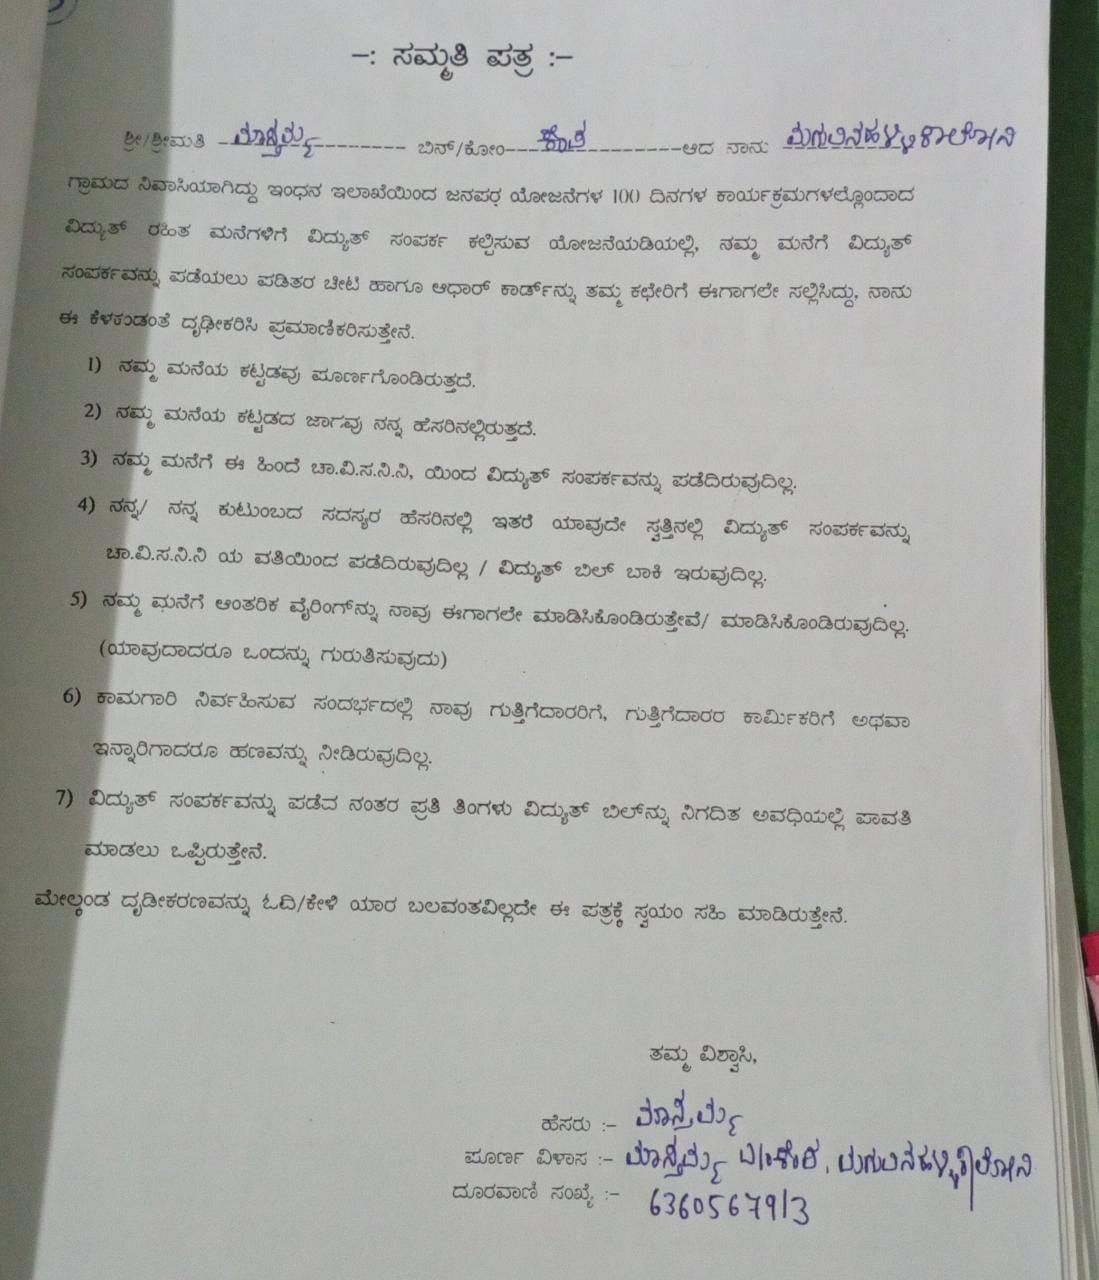 -: ಸಮ್ಮತಿ ಪತ್ರ :-
ಶ್ರೀ/ಶ್ರೀಮತಿ ---------- ಬಿನ್/ಕೋಂ----------ಆದ ನಾನು ಮಗುವಿನಹಳ್ಳಿ ಕಾಲೋನಿ
ಗ್ರಾಮದ ನಿವಾಸಿಯಾಗಿದ್ದು ಇಂಧನ ಇಲಾಖೆಯಿಂದ ಜನಪರ ಯೋಜನೆಗಳ 100 ದಿನಗಳ ಕಾರ್ಯಕ್ರಮಗಳಲ್ಲೊಂದಾದ
ವಿದ್ಯುತ್ ರಹಿತ ಮನೆಗಳಿಗೆ ವಿದ್ಯುತ್ ಸಂಪರ್ಕ ಕಲ್ಪಿಸುವ ಯೋಜನೆಯಡಿಯಲ್ಲಿ, ನಮ್ಮ ಮನೆಗೆ ವಿದ್ಯುತ್
ಸಂಪರ್ಕವನ್ನು ಪಡೆಯಲು ಪಡಿತರ ಚೀಟಿ ಹಾಗೂ ಆಧಾರ್ ಕಾರ್ಡ್‌ನ್ನು ತಮ್ಮ ಕಛೇರಿಗೆ ಈಗಾಗಲೇ ಸಲ್ಲಿಸಿದ್ದು, ನಾನು
ಈ ಕೆಳಕಂಡಂತೆ ದೃಢೀಕರಿಸಿ ಪ್ರಮಾಣಿಕರಿಸುತ್ತೇನೆ.
1) ನಮ್ಮ ಮನೆಯ ಕಟ್ಟಡವು ಪೂರ್ಣಗೊಂಡಿರುತ್ತದೆ.
2) ನಮ್ಮ ಮನೆಯ ಕಟ್ಟಡದ ಜಾಗವು ನನ್ನ ಹೆಸರಿನಲ್ಲಿರುತ್ತದೆ.
3) ನಮ್ಮ ಮನೆಗೆ ಈ ಹಿಂದೆ ಚಾ.ವಿ.ಸ.ನಿ.ನಿ, ಯಿಂದ ವಿದ್ಯುತ್ ಸಂಪರ್ಕವನ್ನು ಪಡೆದಿರುವುದಿಲ್ಲ.
4) ನನ್ನ/ ನನ್ನ ಕುಟುಂಬದ ಸದಸ್ಯರ ಹೆಸರಿನಲ್ಲಿ ಇತರೆ ಯಾವುದೇ ಸ್ವತ್ತಿನಲ್ಲಿ ವಿದ್ಯುತ್ ಸಂಪರ್ಕವನ್ನು
ಚಾ.ವಿ.ಸ.ನಿ.ನಿ ಯ ವತಿಯಿಂದ ಪಡೆದಿರುವುದಿಲ್ಲ / ವಿದ್ಯುತ್ ಬಿಲ್ ಬಾಕಿ ಇರುವುದಿಲ್ಲ.
5) ನಮ್ಮ ಮನೆಗೆ ಆಂತರಿಕ ವೈರಿಂಗ್‌ನ್ನು ನಾವು ಈಗಾಗಲೇ ಮಾಡಿಸಿಕೊಂಡಿರುತ್ತೇವೆ/ ಮಾಡಿಸಿಕೊಂಡಿರುವುದಿಲ್ಲ.
(ಯಾವುದಾದರೂ ಒಂದನ್ನು ಗುರುತಿಸುವುದು)
6) ಕಾಮಗಾರಿ ನಿರ್ವಹಿಸುವ ಸಂದರ್ಭದಲ್ಲಿ ನಾವು ಗುತ್ತಿಗೆದಾರರಿಗೆ, ಗುತ್ತಿಗೆದಾರರ ಕಾರ್ಮಿಕರಿಗೆ ಅಥವಾ
ಇನ್ನಾರಿಗಾದರೂ ಹಣವನ್ನು ನೀಡಿರುವುದಿಲ್ಲ.
7) ವಿದ್ಯುತ್ ಸಂಪರ್ಕವನ್ನು ಪಡೆದ ನಂತರ ಪ್ರತಿ ತಿಂಗಳು ವಿದ್ಯುತ್ ಬಿಲ್‌ನ್ನು ನಿಗದಿತ ಅವಧಿಯಲ್ಲಿ ಪಾವತಿ
ಮಾಡಲು ಒಪ್ಪಿರುತ್ತೇನೆ.
ಮೇಲ್ಕಂಡ ದೃಡೀಕರಣವನ್ನು ಓದಿ/ಕೇಳಿ ಯಾರ ಬಲವಂತವಿಲ್ಲದೇ ಈ ಪತ್ರಕ್ಕೆ ಸ್ವಯಂ ಸಹಿ ಮಾಡಿರುತ್ತೇನೆ.
ತಮ್ಮ ವಿಶ್ವಾಸಿ,
ಹೆಸರು :-
ಪೂರ್ಣ ವಿಳಾಸ :- ಮಗುವಿನಹಳ್ಳಿ ಕಾಲೋನಿ
ದೂರವಾಣಿ ಸಂಖ್ಯೆ :- 6360567913